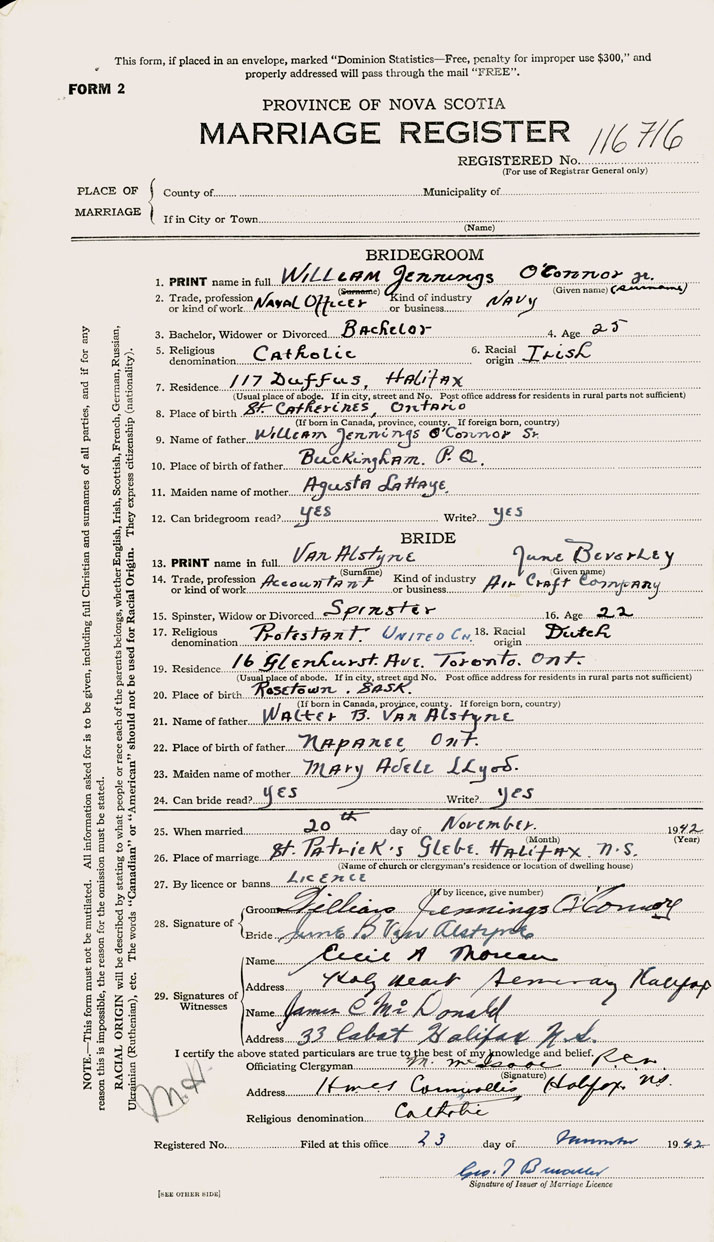 This form, if placed in an envelope, marked "Dominion Statistics—Free, penalty for improper use $300," and
properly addressed will pass through the mail "FREE".
FORM 2
PROVINCE OF NOVA SCOTIA
MARRIAGE REGISTER
REGISTERED No. 116716
(For use of Registrar General only)
PLACE OF MARRIAGE
County of Municipality of
If in City or Town
(Name)
BRIDEGROOM
1. PRINT name in full William Jennings O'Connor jr.
(Surname) (Given name) (Surname)
2. Trade, profession or kind of work Naval Officer Kind of industry or business Navy
3. Bachelor, Widower or Divorced Bachelor 4. Age 25
5. Religious denomination Catholic 6. Racial origin Irish
7. Residence 117 Duffus, Halifax
(Usual place of abode. If in city, street and No. Post office address for residents in rural parts not sufficient)
8. Place of birth St. Catherines, Ontario
(If born in Canada, province, county. If foreign born, country)
9. Name of father William Jennings O'Connor Sr
10. Place of birth of father Buckingham. P.Q.
11. Maiden name of mother Agusta LaHaye
12. Can bridegroom read? yes Write? yes
BRIDE
13. PRINT name in full Van Alstyne June Beverley
(Surname) (Given name)
14. Trade, profession or kind of work Accountant Kind of industry or business Air Craft Company
15. Spinster, Widow or Divorced Spinster 16. Age 22
17. Religious denomination Protestant. United Ch. 18. Racial origin Dutch
19. Residence 16 Glenhurst Ave. Toronto. Ont.
(Usual place of abode. If in city, street and No. Post office address for residents in rural parts not sufficient)
20. Place of birth Rosetown. Sask.
(If born in Canada, province, county. If foreign born, country)
21. Name of father Walter B. Van Alstyne
22. Place of birth of father Napanee, Ont.
23. Maiden name of mother Mary Adele LLyod.
24. Can bride read? yes Write? yes
25. When married 20th day of November. 1942
(Month) (Year)
26. Place of marriage St. Patrick's Glebe. Halifax. N.S.
(Name of church or clergyman's residence or location of dwelling house)
27. By licence or banns Licence
(If by licence, give number)
28. Signature of Groom William Jennings O'Connor jr
Bride June B Van Alstyne
29. Signatures of Witnesses
Name Cecil A Moreau
Address Holy Heart Seminary Halifax
Name James C McDonald
Address 33 Cabot Halifax N.S.
I certify the above stated particulars are true to the best of my knowledge and belief.
Officiating Clergyman M. McIsaac R.C.N.
(Signature)
Address Hmcs Cornwallis Halifax, N.S.
Religious denomination Catholic
Registered No. Filed at this office 23 day of November 1942
Geo. T
Signature of Issuer of Marriage Licence
[SEE OTHER SIDE]
NOTE.—This form must not be mutilated. All information asked for is to be given, including full Christian and surnames of all parties, and if for any
reason this is impossible, the reason for the omission must be stated.
RACIAL ORIGIN will be described by stating to what people or race each of the parents belongs, whether English, Irish, Scottish, French, German, Russian,
Ukrainian (Ruthenian), etc. The words "Canadian" or "American" should not be used for Racial Origin. They express citizenship (nationality).
M.H.